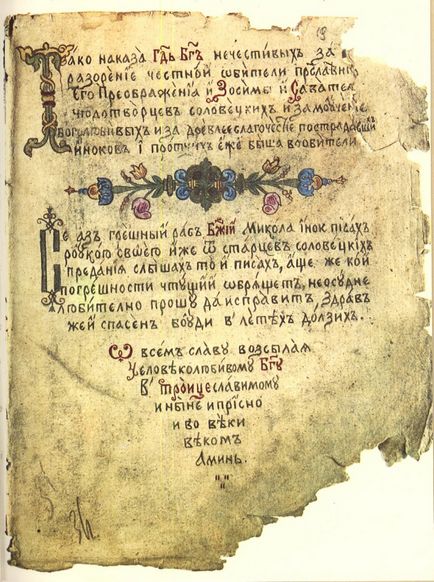 Тако наказа Гдь Бгъ нечестивыхъ за
разоренїе честной ѡбители
Его Преображенїя и Зосимы и Савател
чюдотворцев соловецкихъ и замѹченїе
боголюбивыхъ и за древлее благочестїе пострадавши
їноков ї протчихъ еже быша во обители
Се азъ грешный рабъ Бжїй Микола їнок писахъ
рукою своею иже ѿ старцев соловецкїхъ
преданїя слышахъ то и писахъ, аще же кой
погрешности чтущий ѡбрящетъ, неосудне
любително прошу да исправит, здрав
же й спасен боуди в' летѣхъ долзих.
Ѡ всемъ славу возсылая
Человѣколюбивому Бгу
в' Троице славимому
и нынѣ и присно
и во вѣки
вѣкомъ
Аминь.
36